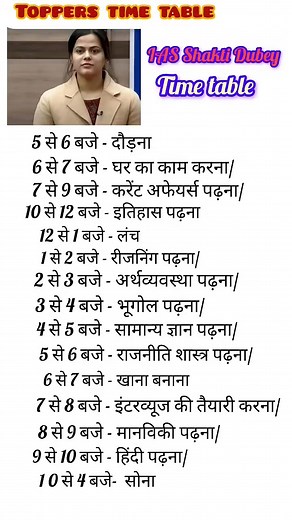 TOPPERS TIME TABLE
IAS Shakti Dubey
Time table
5 से 6 बजे - दौड़ना
6 से 7 बजे - घर का काम करना/
7 से 9 बजे - करेंट अफेयर्स पढ़ना/
10 से 12 बजे - इतिहास पढ़ना
12 से 1 बजे - लंच
1 से 2 बजे - रीजनिंग पढ़ना/
2 से 3 बजे - अर्थव्यवस्था पढ़ना/
3 से 4 बजे - भूगोल पढ़ना/
4 से 5 बजे - सामान्य ज्ञान पढ़ना/
5 से 6 बजे - राजनीति शास्त्र पढ़ना/
6 से 7 बजे - खाना बनाना
7 से 8 बजे - इंटरव्यूज की तैयारी करना/
8 से 9 बजे - मानविकी पढ़ना/
9 से 10 बजे - हिंदी पढ़ना/
1 0 से 4 बजे- सोना